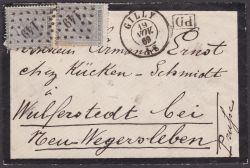 GILLY
PD
Armand Ernst
chez Kücken-Schmidt
à
Wulferstedt bei
Neu-Wegersleben
Prusse